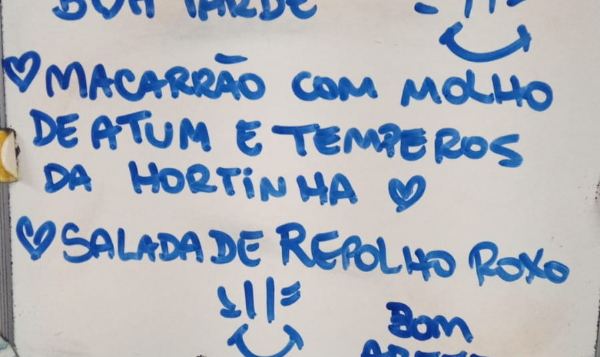 BOA TARDE
♡ MACARRÃO COM MOLHO
DE ATUM E TEMPEROS
DA HORTINHA ♡
♡ SALADA DE REPOLHO ROXO
BOM